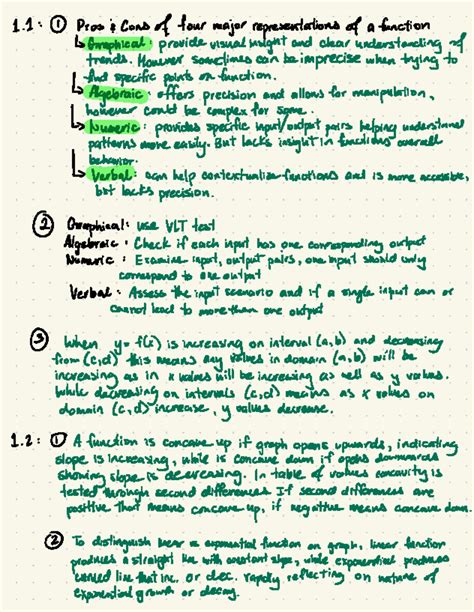 1.1: ① Pros & Cons of four major representations of a function
↳ Graphical: provide visual insight and clear understanding of
trends. However sometimes can be imprecise when trying to
find specific points on function.
↳ Algebraic: offers precision and allows for manipulation,
however could be complex for some.
↳ Numeric: provides specific input/output pairs helping understand
patterns more easily. But lacks insight in functions overall
behavior.
↳ Verbal: can help contextualize functions and is more accessible,
but lacks precision.
② Graphical: use VLT test
Algebraic: Check if each input has one corresponding output
Numeric: Examine input, output pairs, one input should only
correspond to one output
Verbal: Assess the input scenario and if a single input can or
cannot lead to more than one output
③ When y=f(x) is increasing on interval (a,b) and decreasing
from (c,d) this means any values in domain (a,b) will be
increasing as in x values will be increasing as well as y values.
While decreasing on intervals (c,d) means as x values on
domain (c,d) increase, y values decrease.
1.2: ① A function is concave up if graph opens upwards, indicating
slope is increasing, while is concave down if opens downwards
showing slope is decreasing. In table of values concavity is
tested through second differences If second differences are
positive that means concave up, if negative means concave down.
② To distinguish linear vs exponential function on graph, linear function
produces a straight line with constant slope, while exponential produces
curved line that inc. or dec. rapidly reflecting on nature of
exponential growth or decay.